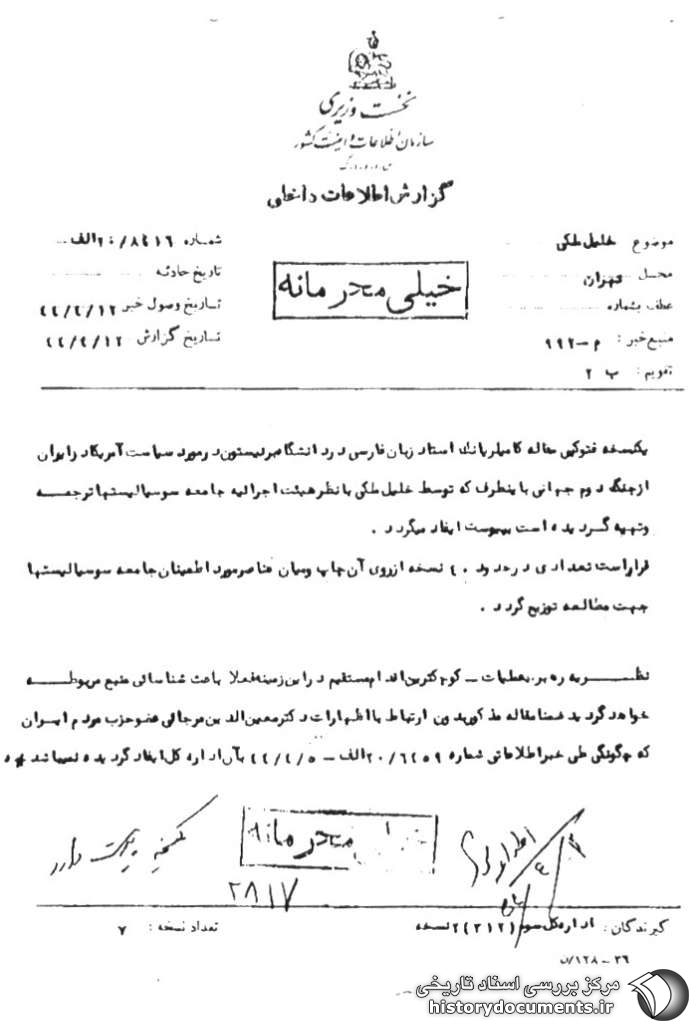 نخست وزیری
سازمان اطلاعات و امنیت کشور
گزارش اطلاعات داخلی
موضوع خلیل ملکی
محل تهران
عطف بشماره
منبع خبر : م - ۹۹۲
تقویم : ب ۲
شماره الف
تاریخ حادثه
تاریخ وصول خبر
تاریخ گزارش
خیلی محرمانه
یکنسخه فتوکپی مقاله استاد زبان فارسی در دانشگاه در مورد سیاست آمریکا در ایران
از جنگ دوم جهانی باینطرف که توسط خلیل ملکی با نظر هیئت اجرائیه جامعه سوسیالیستها ترجمه
وتهیه گردیده است بپیوست ایفاد میگردد .
قرار است تعدادی در حدود ۴۰ نسخه از روی آن چاپ ومیان عناصر مورد اطمینان جامعه سوسیالیستها
جهت مطالعه توزیع گردد .
نظریه رهبر عملیات - کوچکترین اقدام مستقیم در این زمینه فعلا باعث شناسائی منبع مربوطه
خواهد گردید ضمنا مقاله مذکور بدون ارتباط با اظهارات دکتر معین الدین مرجائی عضو حزب مردم ایران
که چگونگی طی خبر اطلاعاتی شماره ۲۰/۶۴۵۹ الف - بآن اداره کل ایفاد گردیده نمیباشد
محرمانه
یکنسخه پیوست دارد
۲۸۱۷
گیرندگان : اداره کل سوم (۳۱۲) ۲ نسخه
تعداد نسخه : ۷
۳۶ - ۱۲۸/ن
مرکز بررسی اسناد تاریخی
historydocuments.ir